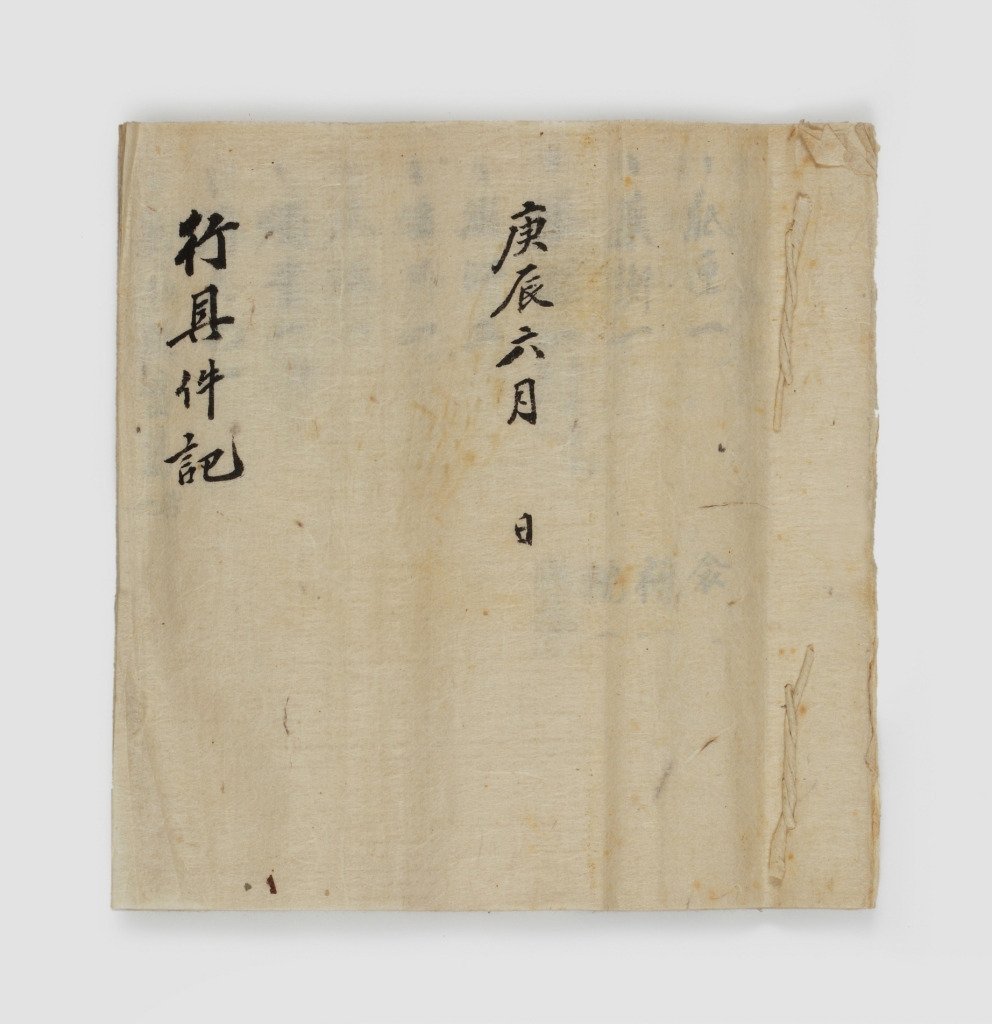 庚辰六月 日
行具件記